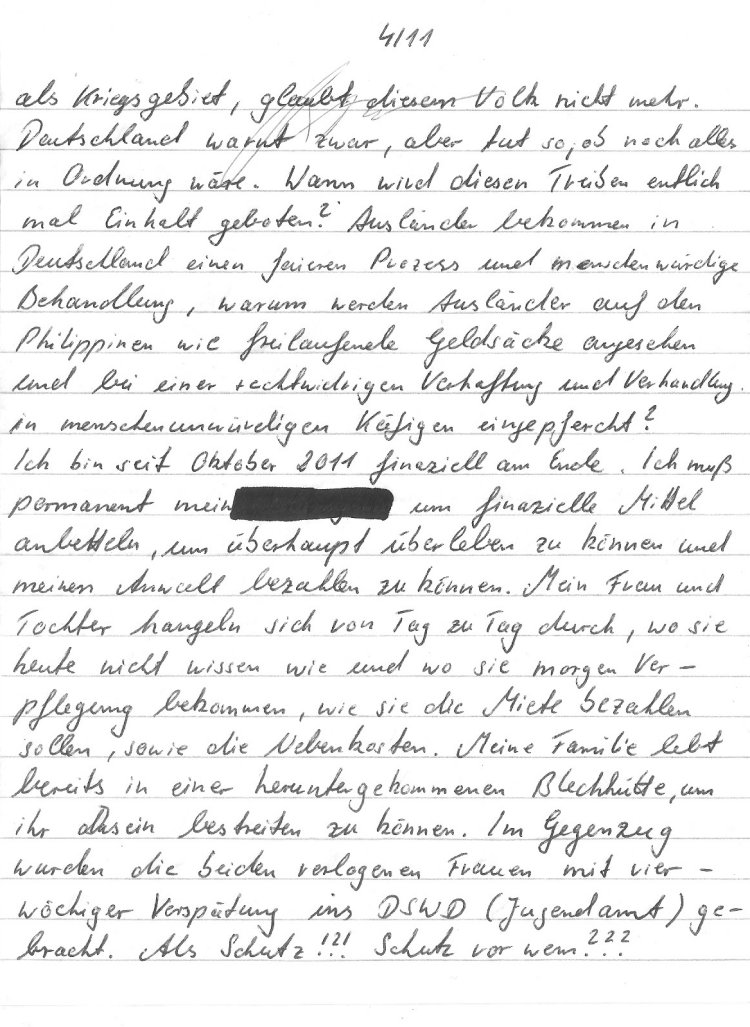 4/11
als Kriegsgebiet, glaubt diesem Volk nicht mehr.
Deutschland warnt zwar, aber tut so, ob noch alles
in Ordnung wäre. Wann wird diesen Treiben entlich
mal Einhalt geboten? Ausländer bekommen in
Deutschland einen faieren Prozess und menschenwürdige
Behandlung, warum werden Ausländer auf den
Philippinen wie freilaufende Geldsäcke angesehen
und bei einer rechtwidrigen Verhaftung und Verhandlung
in menschenunwürdigen Käfigen eingepfercht?
Ich bin seit Oktober 2011 finaziell am Ende. Ich muß
permanent mein um finazielle Mittel
anbetteln, um überhaupt überleben zu können und
meinen Anwalt bezahlen zu können. Mein Frau und
Tochter hangeln sich von Tag zu Tag durch, wo sie
heute nicht wissen wie und wo sie morgen Ver-
pflegung bekommen, wie sie die Miete bezahlen
sollen, sowie die Nebenkosten. Meine Familie lebt
bereits in einer heruntergekommenen Blechhütte, um
ihr dasein bestreiten zu können. Im Gegenzug
wurden die beiden verlogenen Frauen mit vier-
wöchiger Verspätung ins DSWD (Jugendamt) ge-
bracht. Als Schutz!?! Schutz vor wem???